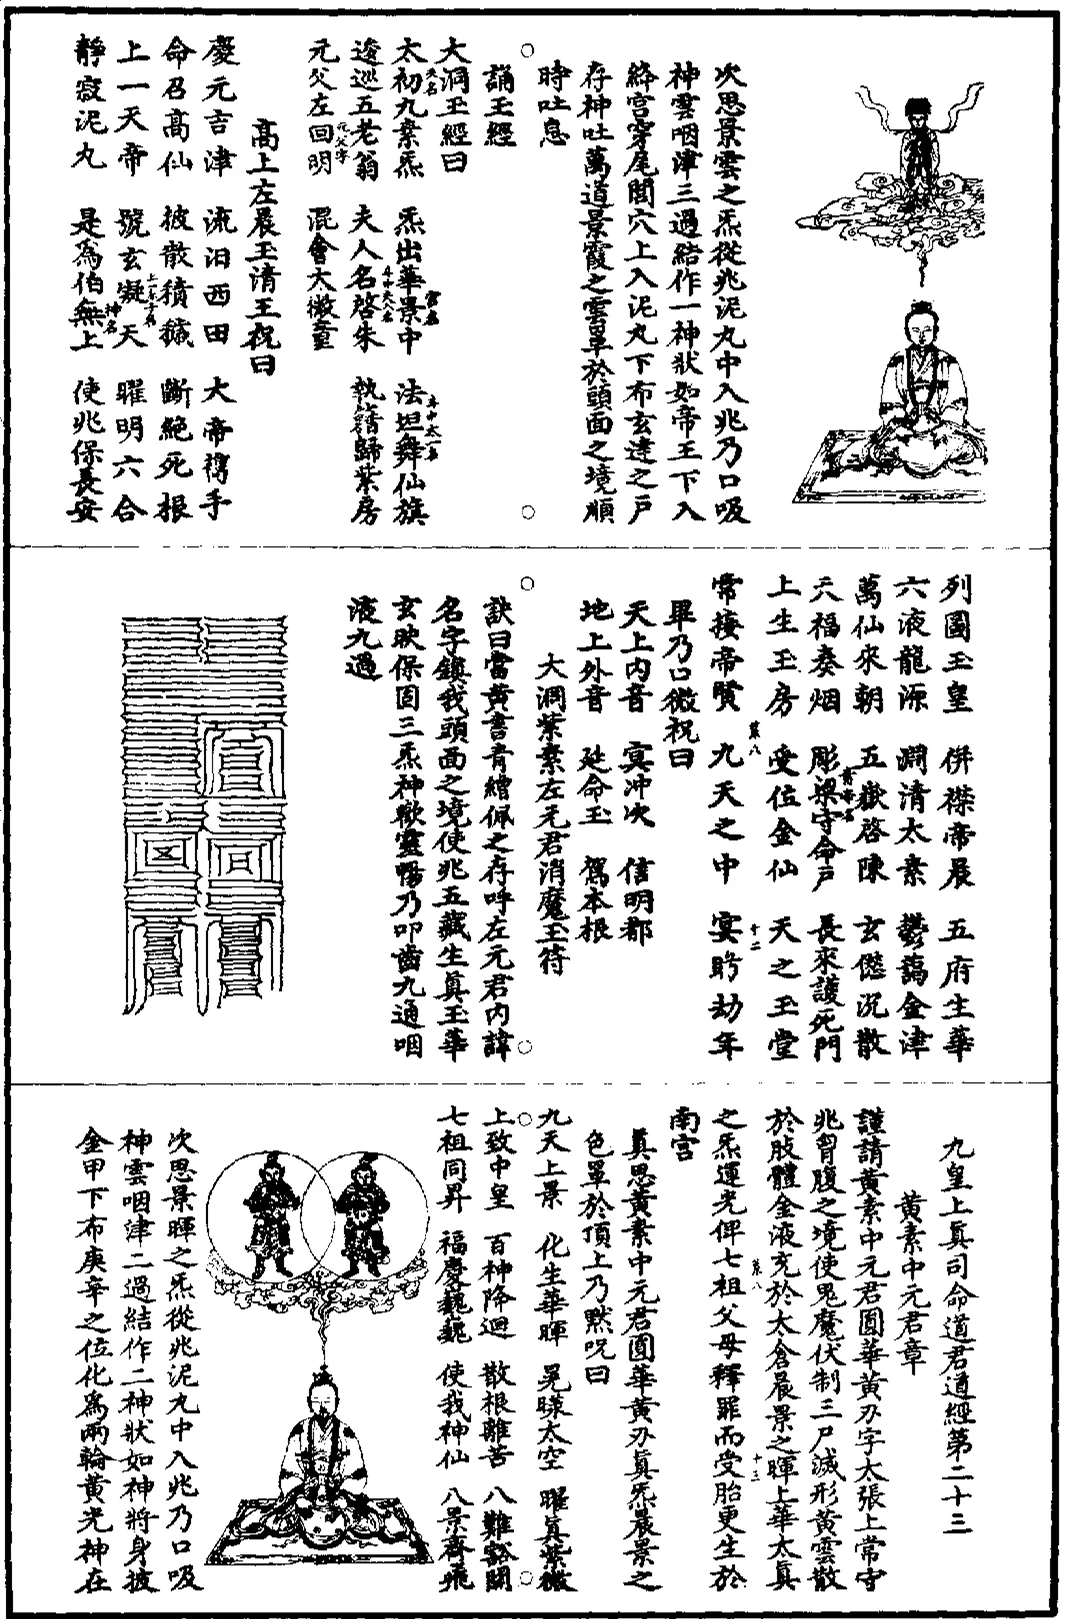 次思景雲之炁從兆泥丸中入兆乃口吸
神雲咽津三過結作一神狀如帝王下入
絳宮穿尾閭穴上入泥丸下布玄達之戶
存神吐萬道景霞之雲罩於頭面之境順
時吐息
誦玉經
大洞玉經曰
太初九素炁 炁出華景中 法坦舞仙旗
天名 宮名 斗中太一名
逡巡五老翁 夫人名啓朱 執籍歸紫房
斗中夫人名
元父左回明 混會大微童
元父字
高上左晨玉清王祝曰
慶元吉津 流汨西田 大帝攜手
命召高仙 披散積穢 斷絕死根
上一天帝 號玄凝天 曜明六合
上一帝君名
靜寂泥丸 是為伯無上 使兆保長安
神名
列圖玉皇 併襟帝晨 五府生華
六液龍源 淵清太素 鬱藹金津
萬仙來朝 五嶽啓陳 玄僊沉散
天福奏烟 彫梁守命戶 長來護死門
上生玉房 受位金仙 天之玉堂
常接帝賢 九天之中 宴眄劫年
菜八 十二
畢乃口微祝曰
天上內音 寞冲次 信明郡
地上外音 延命玉 駕本根
大洞紫素左元君消魔玉符
訣曰當黃書青繒佩之存呼左元君內諱
名字鎮我頭面之境使兆五藏生真玉華
玄映保固三炁神歡靈暢乃叩齒九通咽
液九過
九皇上真司命道君道經第二十三
黃素中元君章
謹請黃素中元君圓華黃刃字太張上常守
兆胷腹之境使鬼魔伏制三尸滅形黃雲散
於肢體金液充於太倉晨景之暉上華太真
之炁運光俾七祖父母釋罪而受胎更生於
菜八 十三
南宮
真思黃素中元君圓華黃刃真炁晨景之
色罩於頂上乃默呪曰
九天上景 化生華暉 晃曚太空 曜真紫微
上致中皇 百神降迴 散根離苦 八難豁開
七祖同昇 福慶巍巍 使我神仙 八景齊飛
次思景暉之炁從兆泥丸中入兆乃口吸
神雲咽津二過結作二神狀如神將身披
金甲下布庚辛之位化為兩輪黃光神在